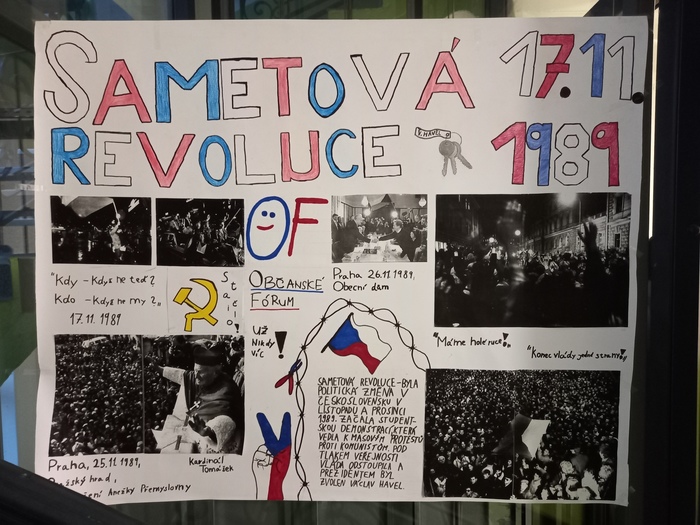 SAMETOVÁ
REVOLUCE
17.11
1989
V. HAVEL
OF
OBČANSKÉ
FÓRUM
Praha 26.11.1989,
Obecní dům
"Kdy -Když ne teď?
Kdo -Když ne my?"
17.11. 1989
Stačilo!
Už
Nikdy
víc!
"Máme holé ruce!"
"Konec vlády jedné strany!"
SAMETOVÁ REVOLUCE-BYLA
POLITICKÁ ZMĚNA V
ČESKOSLOVENSKU V
LISTOPADU A PROSINCI
1989. ZAČALA STUDENT-
SKOU DEMONSTRACÍ, KTERÁ
VEDLA K MASOVÝM PROTESTŮ
PROTI KOMUNISTŮM. POD
TLAKEM VEŘEJNOSTI
VLÁDA ODSTOUPILA A
PREZIDENTEM BYL
ZVOLEN VÁCLAV HAVEL.
Praha, 25.11 1989,
Pražský hrad,
Anežky Přemyslovny
Kardinál
Tomášek